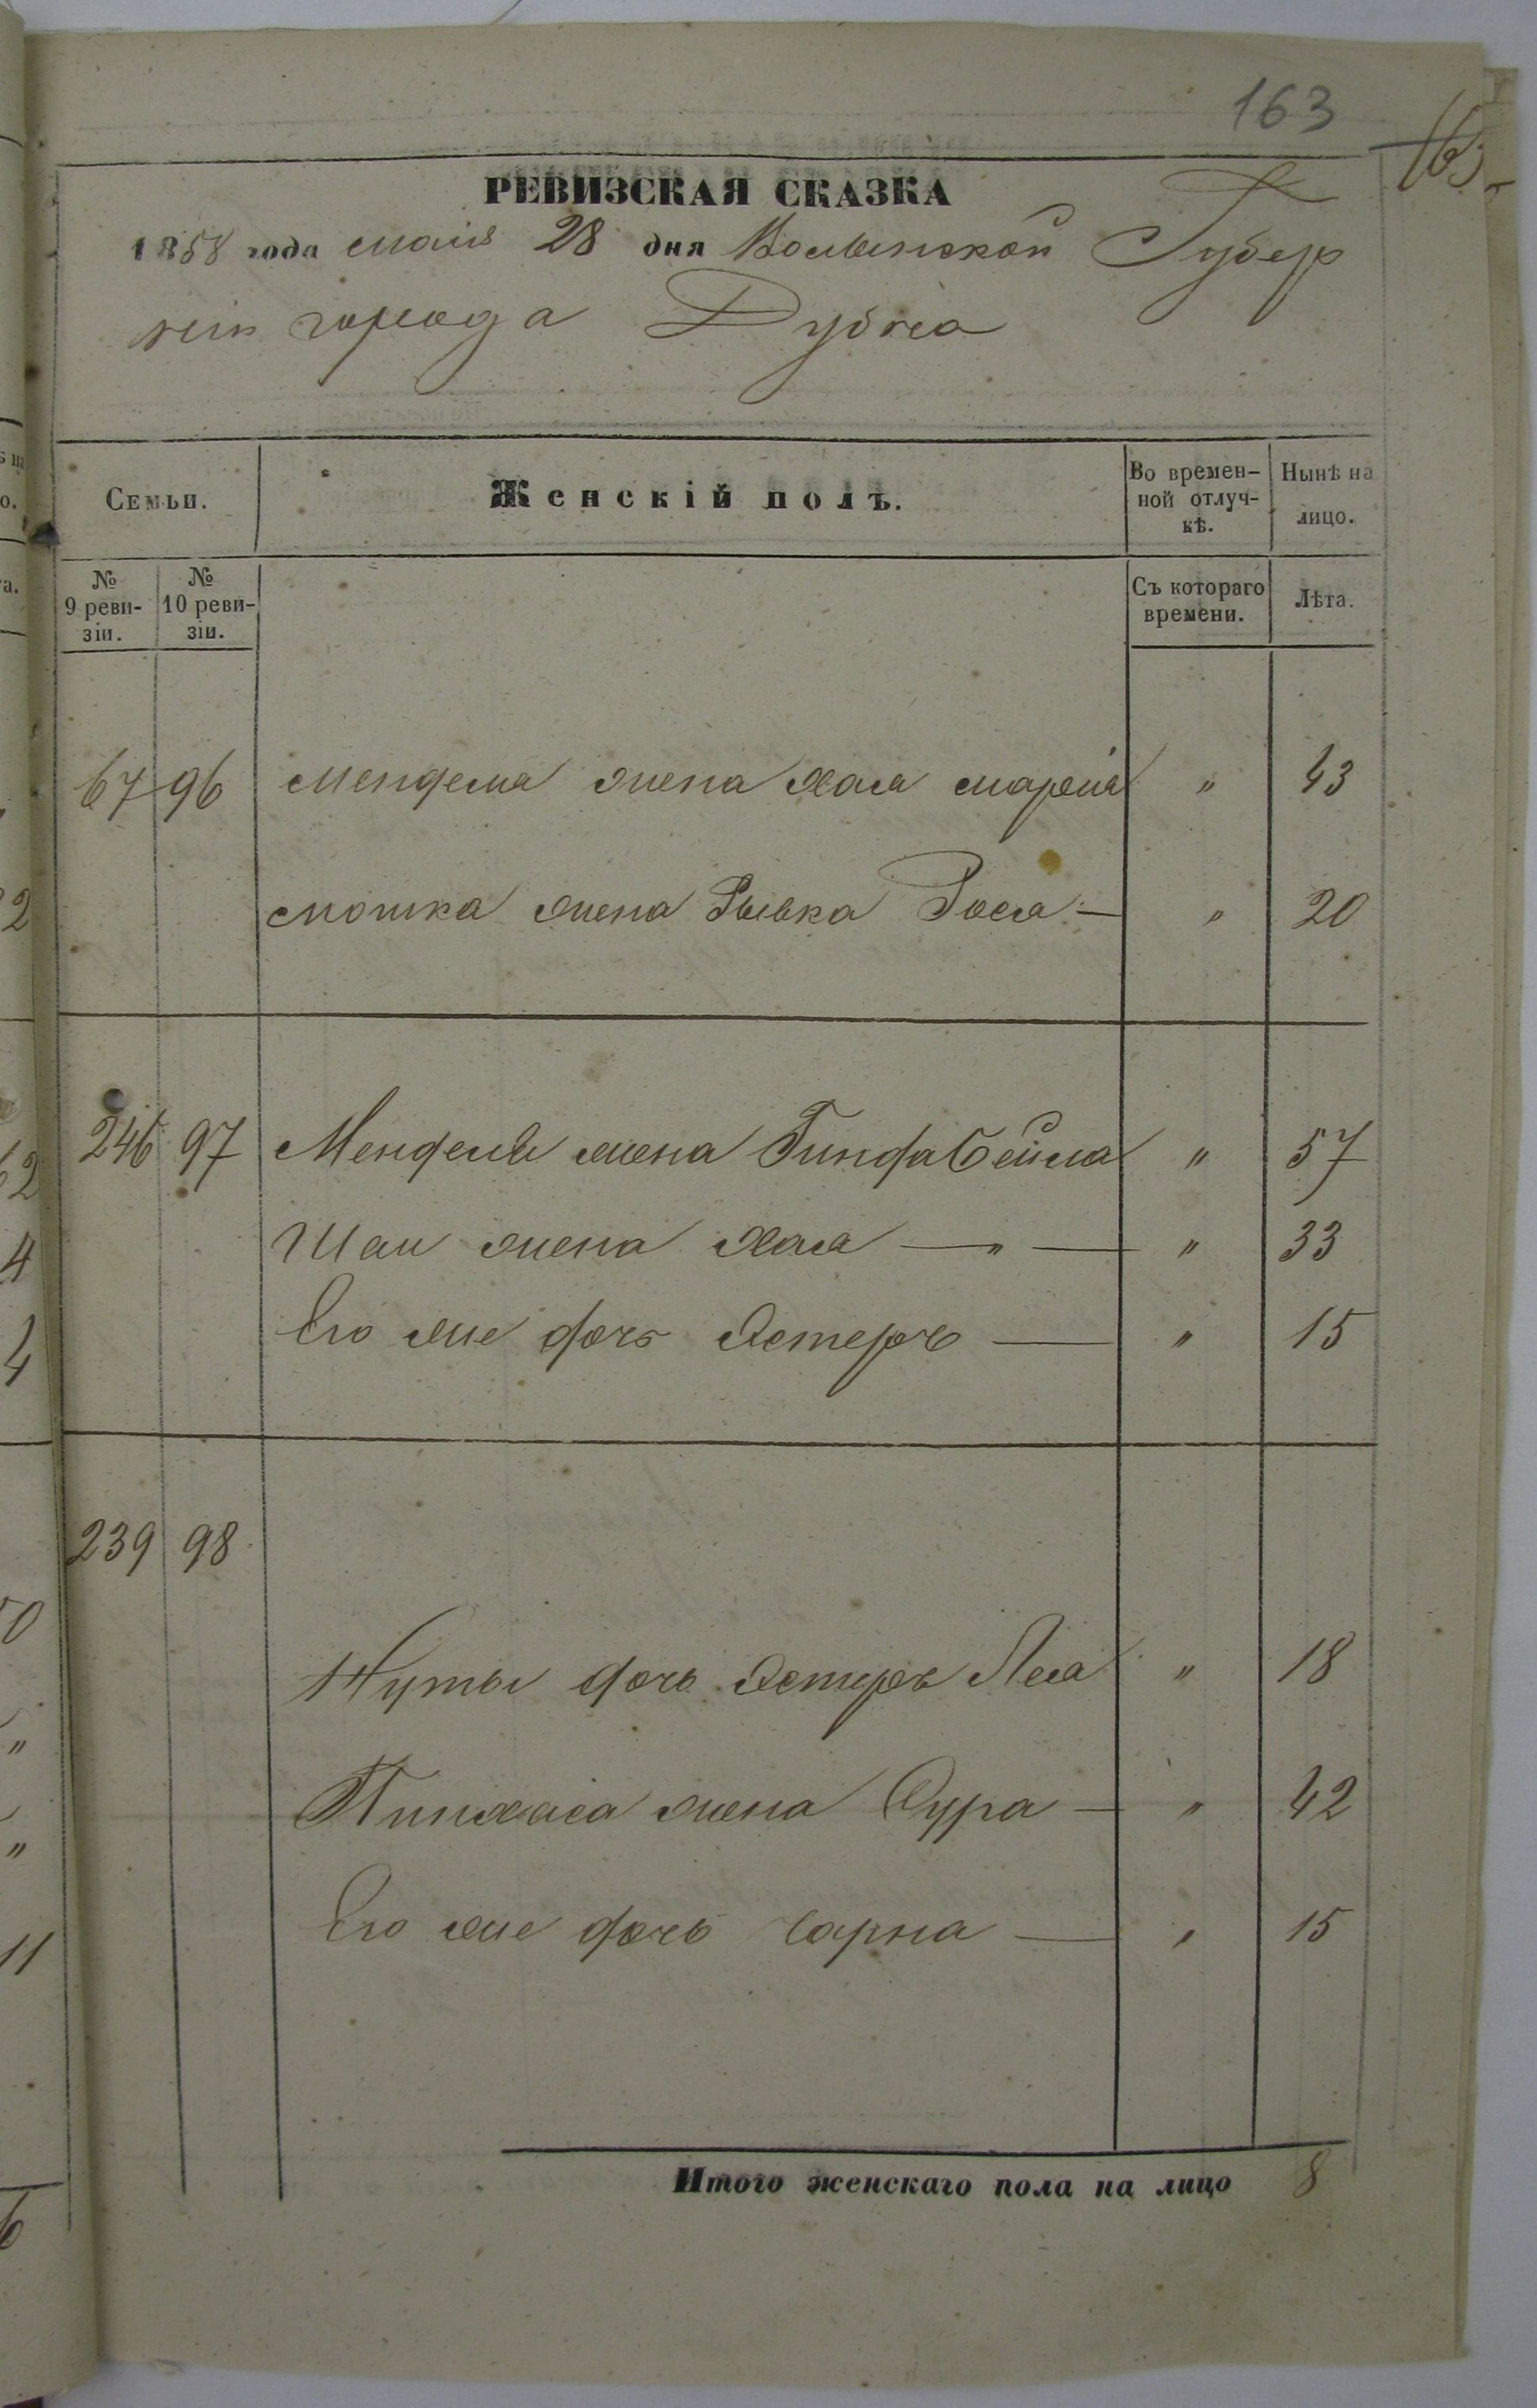 163
163
РЕВИЗСКАЯ СКАЗКА
1858 года мая 28 дня Волынской Губер
ніи города Дубна
Семьи.
Женскій полъ.
Во времен-
ной отлуч-
кѣ.
Нынѣ на
лицо.
№
9 реви-
зіи.
№
10 реви-
зіи.
Съ котораго
времени.
Лѣта.
67 96 Менделя жена Хая " 43
Мошка жена Рывка Рося — " 20
246 97 Менделя жена Гинда Бейла " 57
Шаи жена Хая — " — " 33
Его же дочь Эстеръ — " 15
239 98
Нуты дочь Эстеръ Лея " 18
Пинхаса жена Сура — " 42
Его же дочь Чарна — " 15
Итого женскаго пола на лицо 8